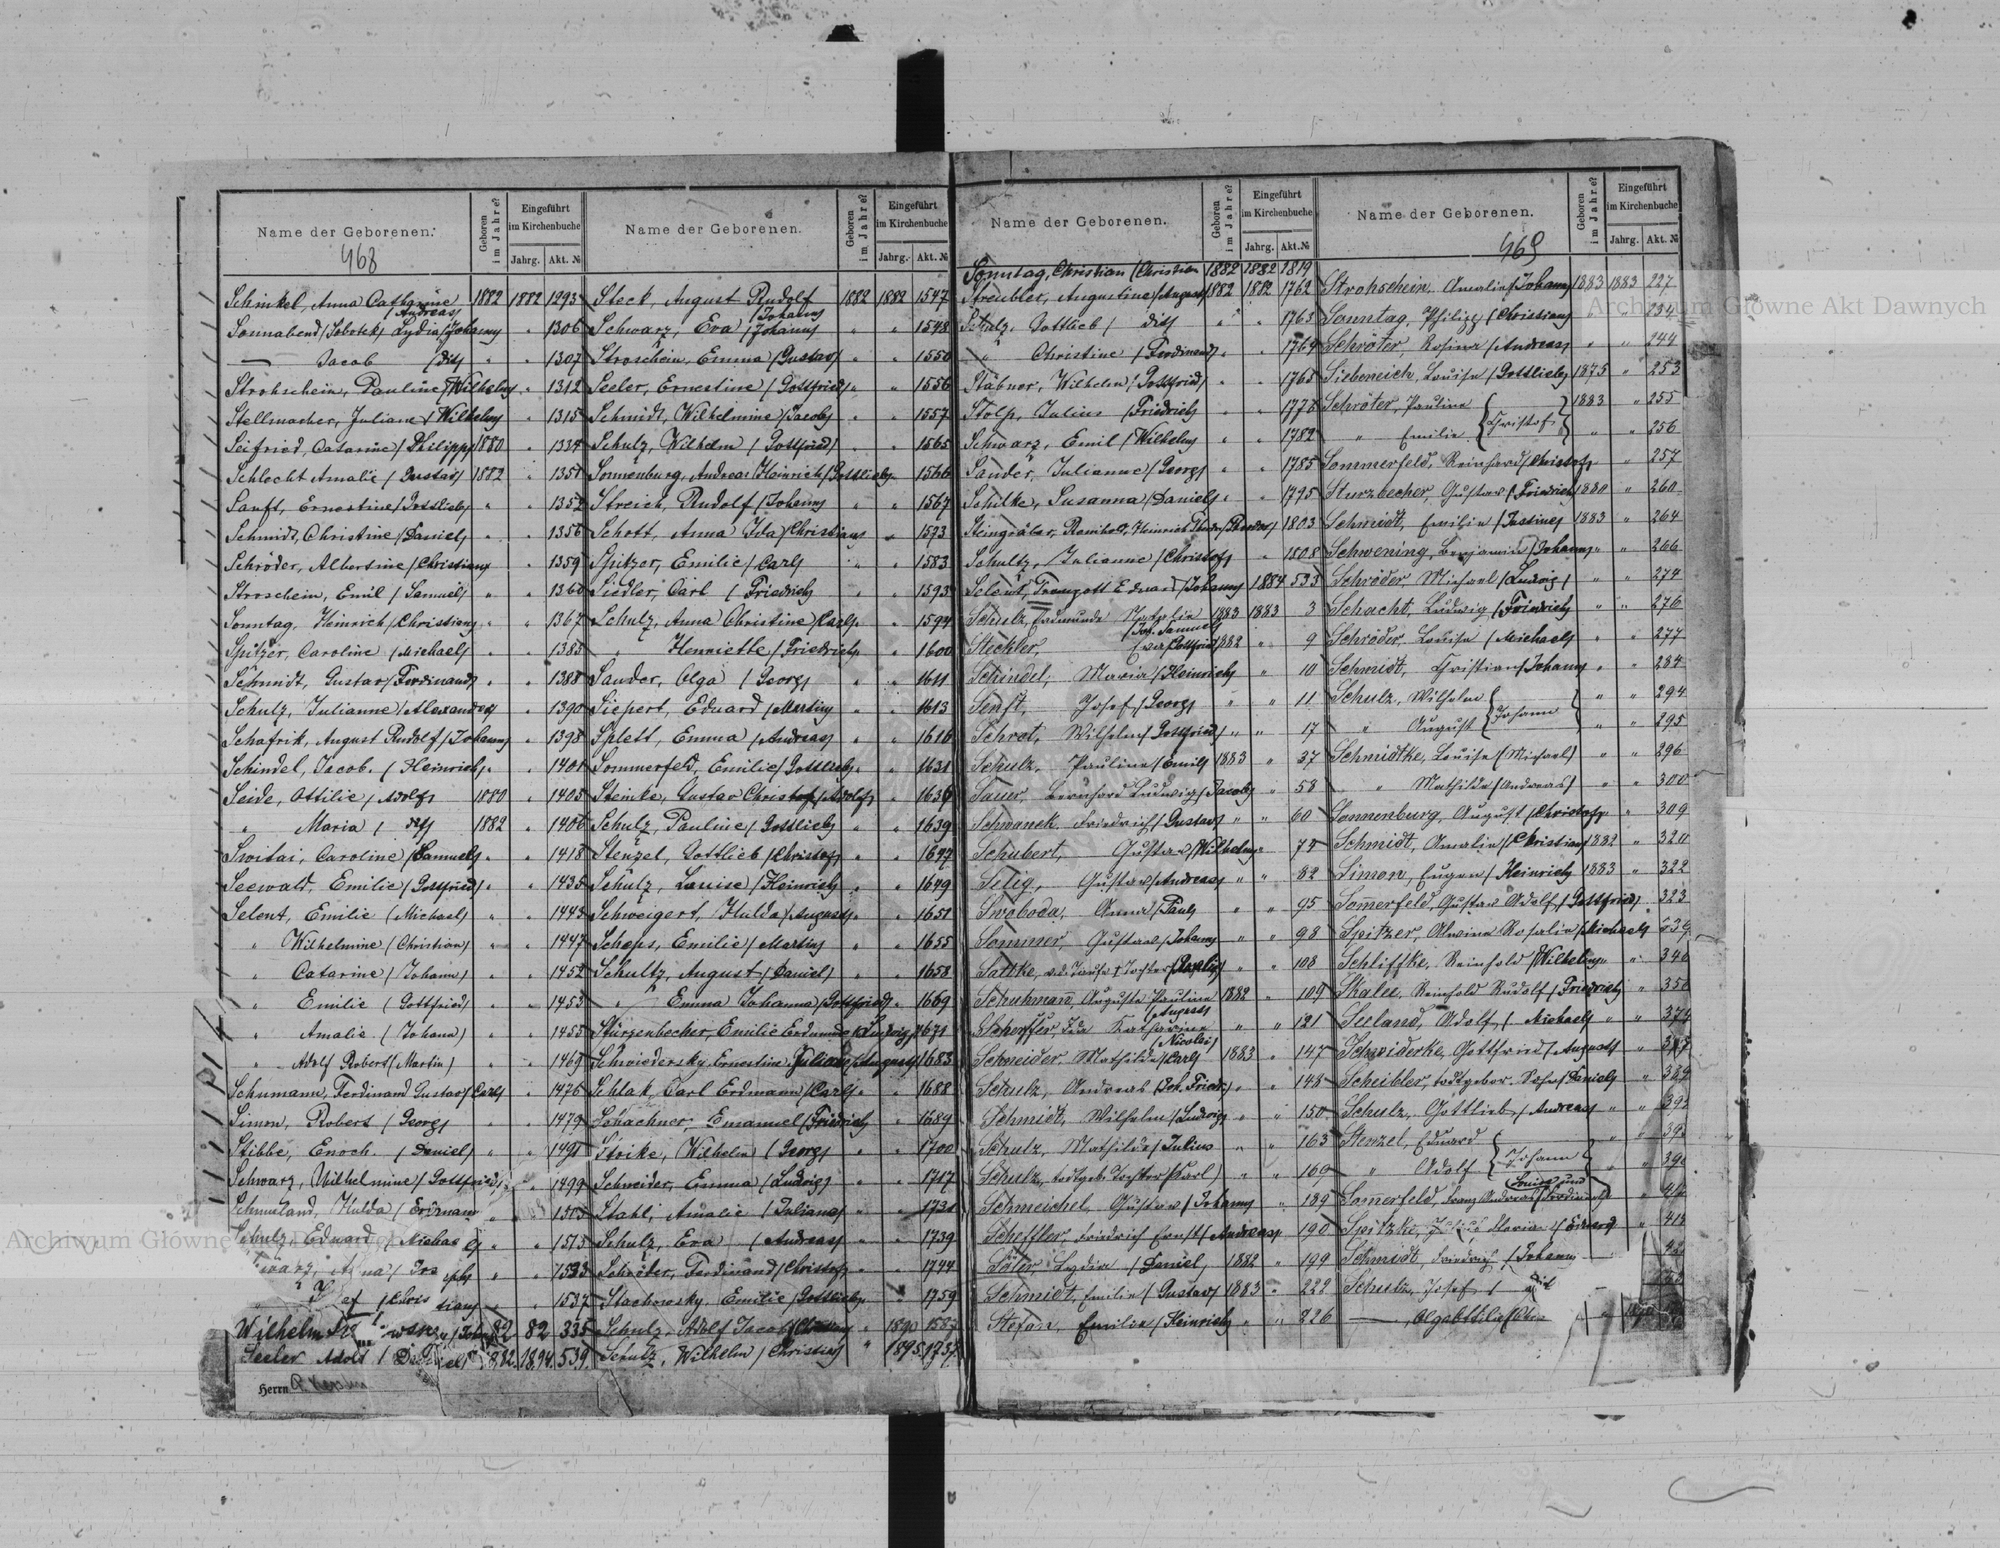 Name der Geborenen.
Geboren im Jahre?
Eingeführt im Kirchenbuche
Jahrg. Akt. №
468
Schinkel, Anna Catharine (Andreas) 1882 1882 1293
Sonnabend (Sobotek) Lydia (Johann) " " 1306
— Jacob (dit) " " 1307
Strohschein, Pauline (Wilhelm) " " 1312
Stellmacher, Juliane (Wilhelm) " " 1315
Seifried, Catarine (Philipp) 1880 " 1334
Schlecht Amalie (Gustav) 1882 " 1351
Sanft, Ernestine (Gottlieb) " " 1352
Schmidt, Christine (Daniel) " " 1356
Schröder, Albertine (Christian) " 1359
Stroschein, Emil (Samuel) " " 1360
Sonntag, Heinrich (Christian) " " 1367
Spitzer, Caroline (Michael) " " 1383
Schmidt, Gustav (Ferdinand) " " 1388
Schulz, Julianne (Alexander) " 1390
Schafrik, August Rudolf (Johann) " 1398
Schindel, Jacob. (Heinrich) " " 1401
Seide, Ottilie (Adolf) 1880 " 1405
" Maria (dit) 1882 " 1406
Switai, Caroline (Samuel) " " 1418
Seewald, Emilie (Gottfried) " " 1435
Selent, Emilie (Michael) " " 1443
" Wilhelmine (Christian) " " 1447
" Catarine (Johann) " " 1452
" Emilie (Gottfried) " " 1453
" Amalie (Johann) " " 1455
" Adolf Robert (Martin) " " 1469
Schumann, Ferdinand Gustav (Carl) " 1476
Simon, Robert (Georg) " " 1479
Stibbe, Enoch (Daniel) " " 1491
Schwarz, Wilhelmine (Gottfried) " " 1499
Schmeland, Hulda (Erdman
Schulz, Eduard (Michael) " " 1513
" " 1533
" " 1537
Wilhelm 82 82 335
Seeler Adolf (Daniel) 1882. 1894. 539.
Herrn
Name der Geborenen.
Geboren im Jahre?
Eingeführt im Kirchenbuche
Jahrg. Akt. №
Steck, August Rudolf (Johann) 1882 1882 1547
Schwarz, Eva (Johann) " " 1548
Stroschein, Emma (Gustav) " " 1550
Seeler, Ernestine (Gottfried) " " 1556
Schmidt, Wilhelmine (Jacob) " " 1557
Schulz, Wilhelm (Gottfried) " " 1565
Sonnenburg, Andreas Heinrich (Gottlieb) " 1566
Streich, Rudolf (Johann) " " 1567
Schott, Anna Ida (Christian) " 1573
Spitzer, Emilie (Carl) " " 1583
Siedler, Carl (Friedrich) " " 1593
Schulz, Anna Christine (Carl) " " 1594
" Henriette (Friedrich) " " 1600
Sander, Olga (Georg) " " 1611
Siepert, Eduard (Martin) " " 1613
Splett, Emma (Andreas) " " 1616
Sommerfeld, Emilie (Gottlieb) " " 1631
Steinke, Gustav Christof (Adolf) " " 1636
Schulz, Pauline (Gottlieb) " " 1639
Stenzel, Gottlieb (Christof) " " 1647
Schulz, Louise (Heinrich) " " 1649
Schweigert, Hulda (August) " " 1651
Scheps, Emilie (Martin) " " 1655
Schultz, August (Daniel) " " 1658
" Emma Johanna (Gottfried) " 1669
Stürzenbecher, Emilie Erdmunde (Ludwig) 1671
Schwiedersky, Ernestine Juliane (August) 1683
Schlak, Carl Erdmann (Carl) " " 1688
Schachner, Emanuel (Friedrich) " 1689
Strike, Wilhelm (Georg) " " 1700
Schneider, Emma (Ludwig) " " 1717
Stahl, Amalie (Juliana) " " 1731
Schulz, Eva (Andreas) " " 1739
Schröder, Ferdinand (Christof) " " 1744
Stachowsky, Emilie (Gottlieb) " " 1759
Schulz, Adolf Jacob " 1890 1587
Schulz, Wilhelm (Christian) " 1895. 1737
Name der Geborenen.
Geboren im Jahre?
Eingeführt im Kirchenbuche
Jahrg. Akt. №
Sonntag, Christian (Christian 1882 1882 1819
Streubler, Augustine (August) 1882 1882 1762
Schulz, Gottlieb (dit) " " 1763
" Christine (Ferdinand) " " 1764
Stabnor, Wilhelm (Gottfried) " " 1765
Stolp, Julius (Friedrich) " " 1778
Schwarz, Emil (Wilhelm) " " 1782
Sander, Julianne (Georg) " " 1785
Schilke, Susanna (Daniel) " " 1795
Steingräber, Reinhold, Heinrich Theodor (Theodor) 1803
Schultz, Julianne (Christof) " 1808
Selent, Traugott Eduard (Johann) 1884 533
Schulz, Erdmunde Natalie (Joh. Samuel) 1883 1883 3
Stechler, Eva (Gottfried) 1882 " 9
Schindel, Maria (Heinrich) " 10
Senft, Josef (Georg) " " 11
Schrot, Wilhelm (Gottfried) " " 17
Schulz, Pauline (Emil) 1883 " 37
Sauer, Bernhard Ludwig (Jacob) " 58
Schwanek, Friedrich (Gustav) " " 60
Schubert, Gustav (Wilhelm) " 74
Selig, Gustav (Andreas) " " 82
Swoboda, Anna (Paul) " " 95
Sommer, Gustav (Johann) " " 98
" " 108
Schuhmann, Auguste Pauline (August) 1882 " 109
Scherffer, Ida Katharine (Nicolai) " " 121
Schneider, Mathilde (Carl) 1883 " 147
Schulz, Andreas (Joh. Friedr.) " " 148
Schmidt, Wilhelm (Ludwig) " " 150
Schulz, Mathilde (Julius " " 163
Schulz, todtgeb. Tochter (Karl) " " 169
Schmeichel, Gustav (Johann) " " 189
Scheffler, Friedrich Ernst (Andreas) " 190
Lydia (Daniel, 1882 " 199
Schmidt, Emilie (Gustav) 1883 " 222
Stefan, Emilie (Heinrich) " " 226
Name der Geborenen.
469
Geboren im Jahre?
Eingeführt im Kirchenbuche
Jahrg. Akt. №
Strohschein, Amalie (Johann) 1883 1883 227
Sonntag, Philipp (Christian) " " 234
Schröter, Rosina (Andreas) " " 244
Siebeneich, Louise (Gottlieb) 1875 " 253
Schröter, Pauline (Christof) 1883 " 255
" Emilie " " 256
Sommerfeld, Reinhard (Christof) " 257
Sturzbecher, Gustav (Friedrich) 1880 " 260
Schmidt, Emilie (Justine) 1883 " 264
Schwening, Benjamin (Johann) " " 266
Schröder, Michael (Ludwig) " " 274
Schacht, Ludwig (Friedrich) " " 276
Schröder, Louise (Michael) " " 277
Schmidt, Christian (Johann) " " 284
Schulz, Wilhelm (Johann) " " 294
" August " " 295
Schmidtke, Louise (Michael) " " 296
" Mathilde (Andreas) " " 300
Sonnenburg, August (Christof) " 309
Schmidt, Amalie (Christian) 1882 " 320
Simon, Eugen (Heinrich) 1883 " 322
Somerfeld, Gustav Adolf (Gottfried) " 323
Spitzer, Alwine Rosalie (Michael) " 339
Schliffke, Reinhold (Wilhelm) " " 340
Skalee, Reinhold Rudolf (Friedrich) " 350
Seeland, Adolf (Michael) " " 374
Schwiderke, Gottfried (August) "
Scheibler, todtgebor. Sohn (Daniel) " 389
Schulz, Gottlieb (Andreas) " "
Stenzel, Eduard (Johann) " "
" Adolf " "
Somerfeld, Franz Andreas
Spitzke,
Schmidt, Friedrich (Johann
Schulz, Josef ( dit
Archiwum Główne Akt Dawnych
Archiwum Główne Akt Dawnych